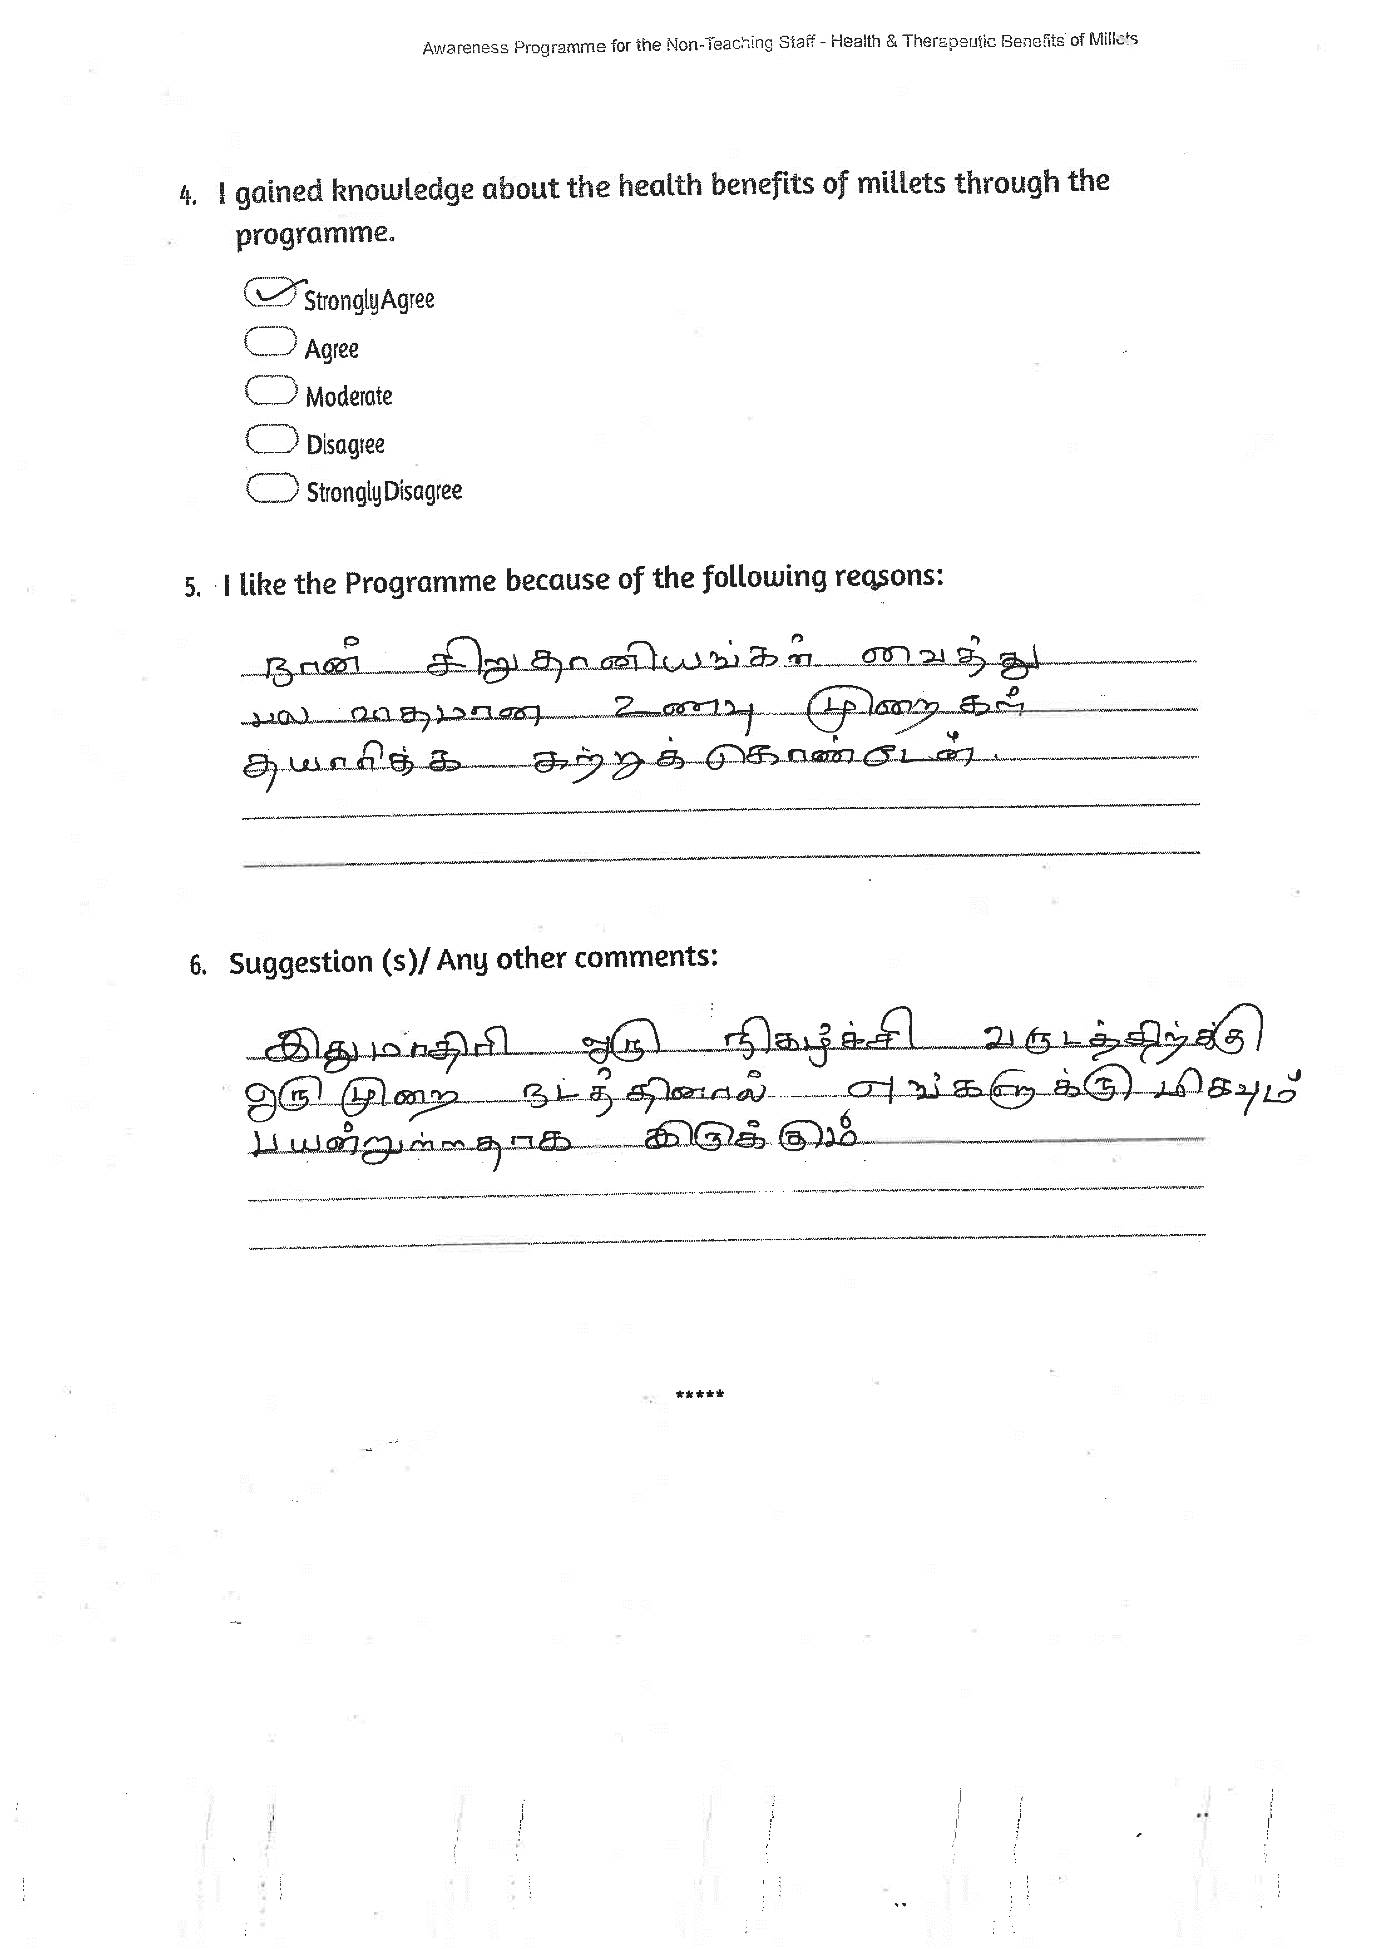 Awareness Programme for the Non-Teaching Staff - Health & Therapeutic Benefits of Millets
4. I gained knowledge about the health benefits of millets through the
programme.
Strongly Agree
Agree
Moderate
Disagree
Strongly Disagree
5. I like the Programme because of the following reasons:
நான் சிறுதானியங்கள் வைத்து
பல உணவு முறைகள்
தயாரிக்க கற்றுக் கொண்டேன்.
6. Suggestion (s)/ Any other comments:
இதுமாதிரி ஒரு நிகழ்ச்சி வருடத்திற்கு
ஒரு முறை நடத்தினால் எங்களுக்கு மிகவும்
பயன்றுள்ளதாக இருக்கும்
*****